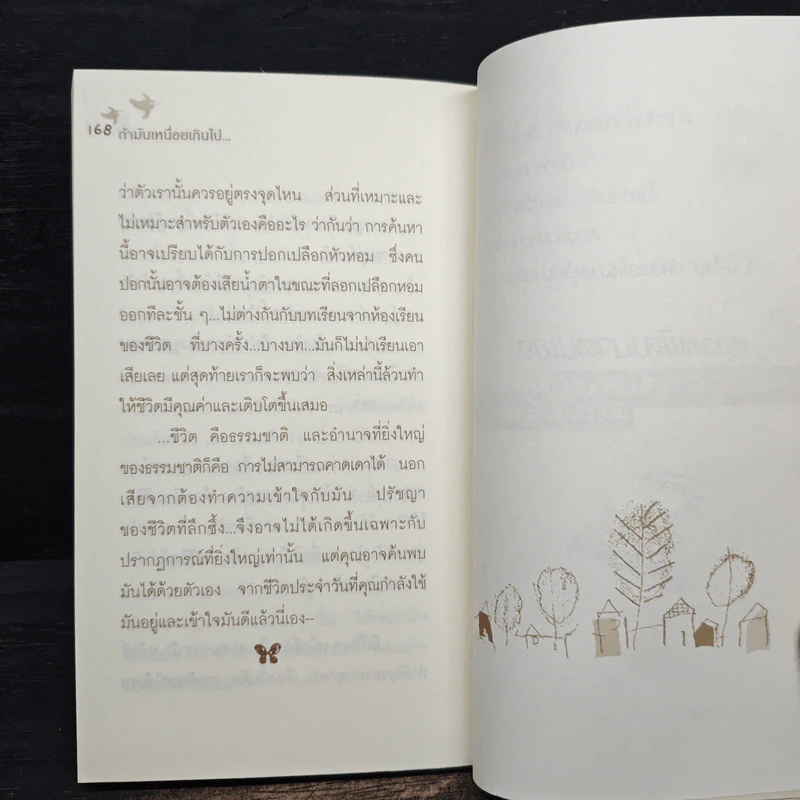 168 ถ้ามันเหนื่อยเกินไป...
ว่าตัวเรานั้นควรอยู่ตรงจุดไหน ส่วนที่เหมาะและ
ไม่เหมาะสำหรับตัวเองคืออะไร ว่ากันว่า การค้นหา
นี้อาจเปรียบได้กับการปอกเปลือกหัวหอม ซึ่งคน
ปอกนั้นอาจต้องเสียน้ำตาในขณะที่ลอกเปลือกหอม
ออกทีละชั้น ๆ...ไม่ต่างกันกับบทเรียนจากห้องเรียน
ของชีวิต ที่บางครั้ง...บางบท...มันก็ไม่น่าเรียนเอา
เสียเลย แต่สุดท้ายเราก็จะพบว่า สิ่งเหล่านี้ล้วนทำ
ให้ชีวิตมีคุณค่าและเติบโตขึ้นเสมอ
...ชีวิต คือธรรมชาติ และอำนาจที่ยิ่งใหญ่
ของธรรมชาติก็คือ การไม่สามารถคาดเดาได้ นอก
เสียจากต้องทำความเข้าใจกับมัน ปรัชญา
ของชีวิตที่ลึกซึ้ง...จึงอาจไม่ได้เกิดขึ้นเฉพาะกับ
ปรากฏการณ์ที่ยิ่งใหญ่เท่านั้น แต่คุณอาจค้นพบ
มันได้ด้วยตัวเอง จากชีวิตประจำวันที่คุณกำลังใช้
มันอยู่และเข้าใจมันดีแล้วนี่เอง--